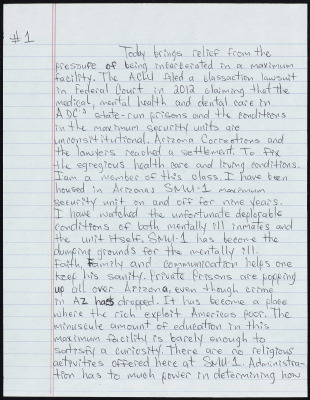 #1
Today brings relief from the
pressure of being incarcerated in a maximum
facility. The ACLU filed a classaction lawsuit
in Federal Court in 2012 claiming that the
medical, mental health and dental care in
ADC's state-run prisons and the conditions
in the maximum security units are
unconstitutional. Arizona Corrections and
the lawyers reached a settlement. To fix
the egregious health care and living conditions.
I am a member of this class. I have been
housed in Arizonas SMU-1 maximum
security unit on and off for nine years.
I have watched the unfortunate deplorable
conditions of both mentally ill inmates and
the unit itself. SMU-1 has become the
dumping grounds for the mentally ill.
Faith, family and communication helps one
keep his sanity. Private Prisons are popping
up all over Arizona, even though crime
in AZ has dropped. It has become a place
where the rich exploit Americas poor. The
minuscule amount of education in this
maximum facility is barely enough to
satisfy a curiosity. There are no religious
activities offered here at SMU-1. Administra-
tion has to much power in determining how